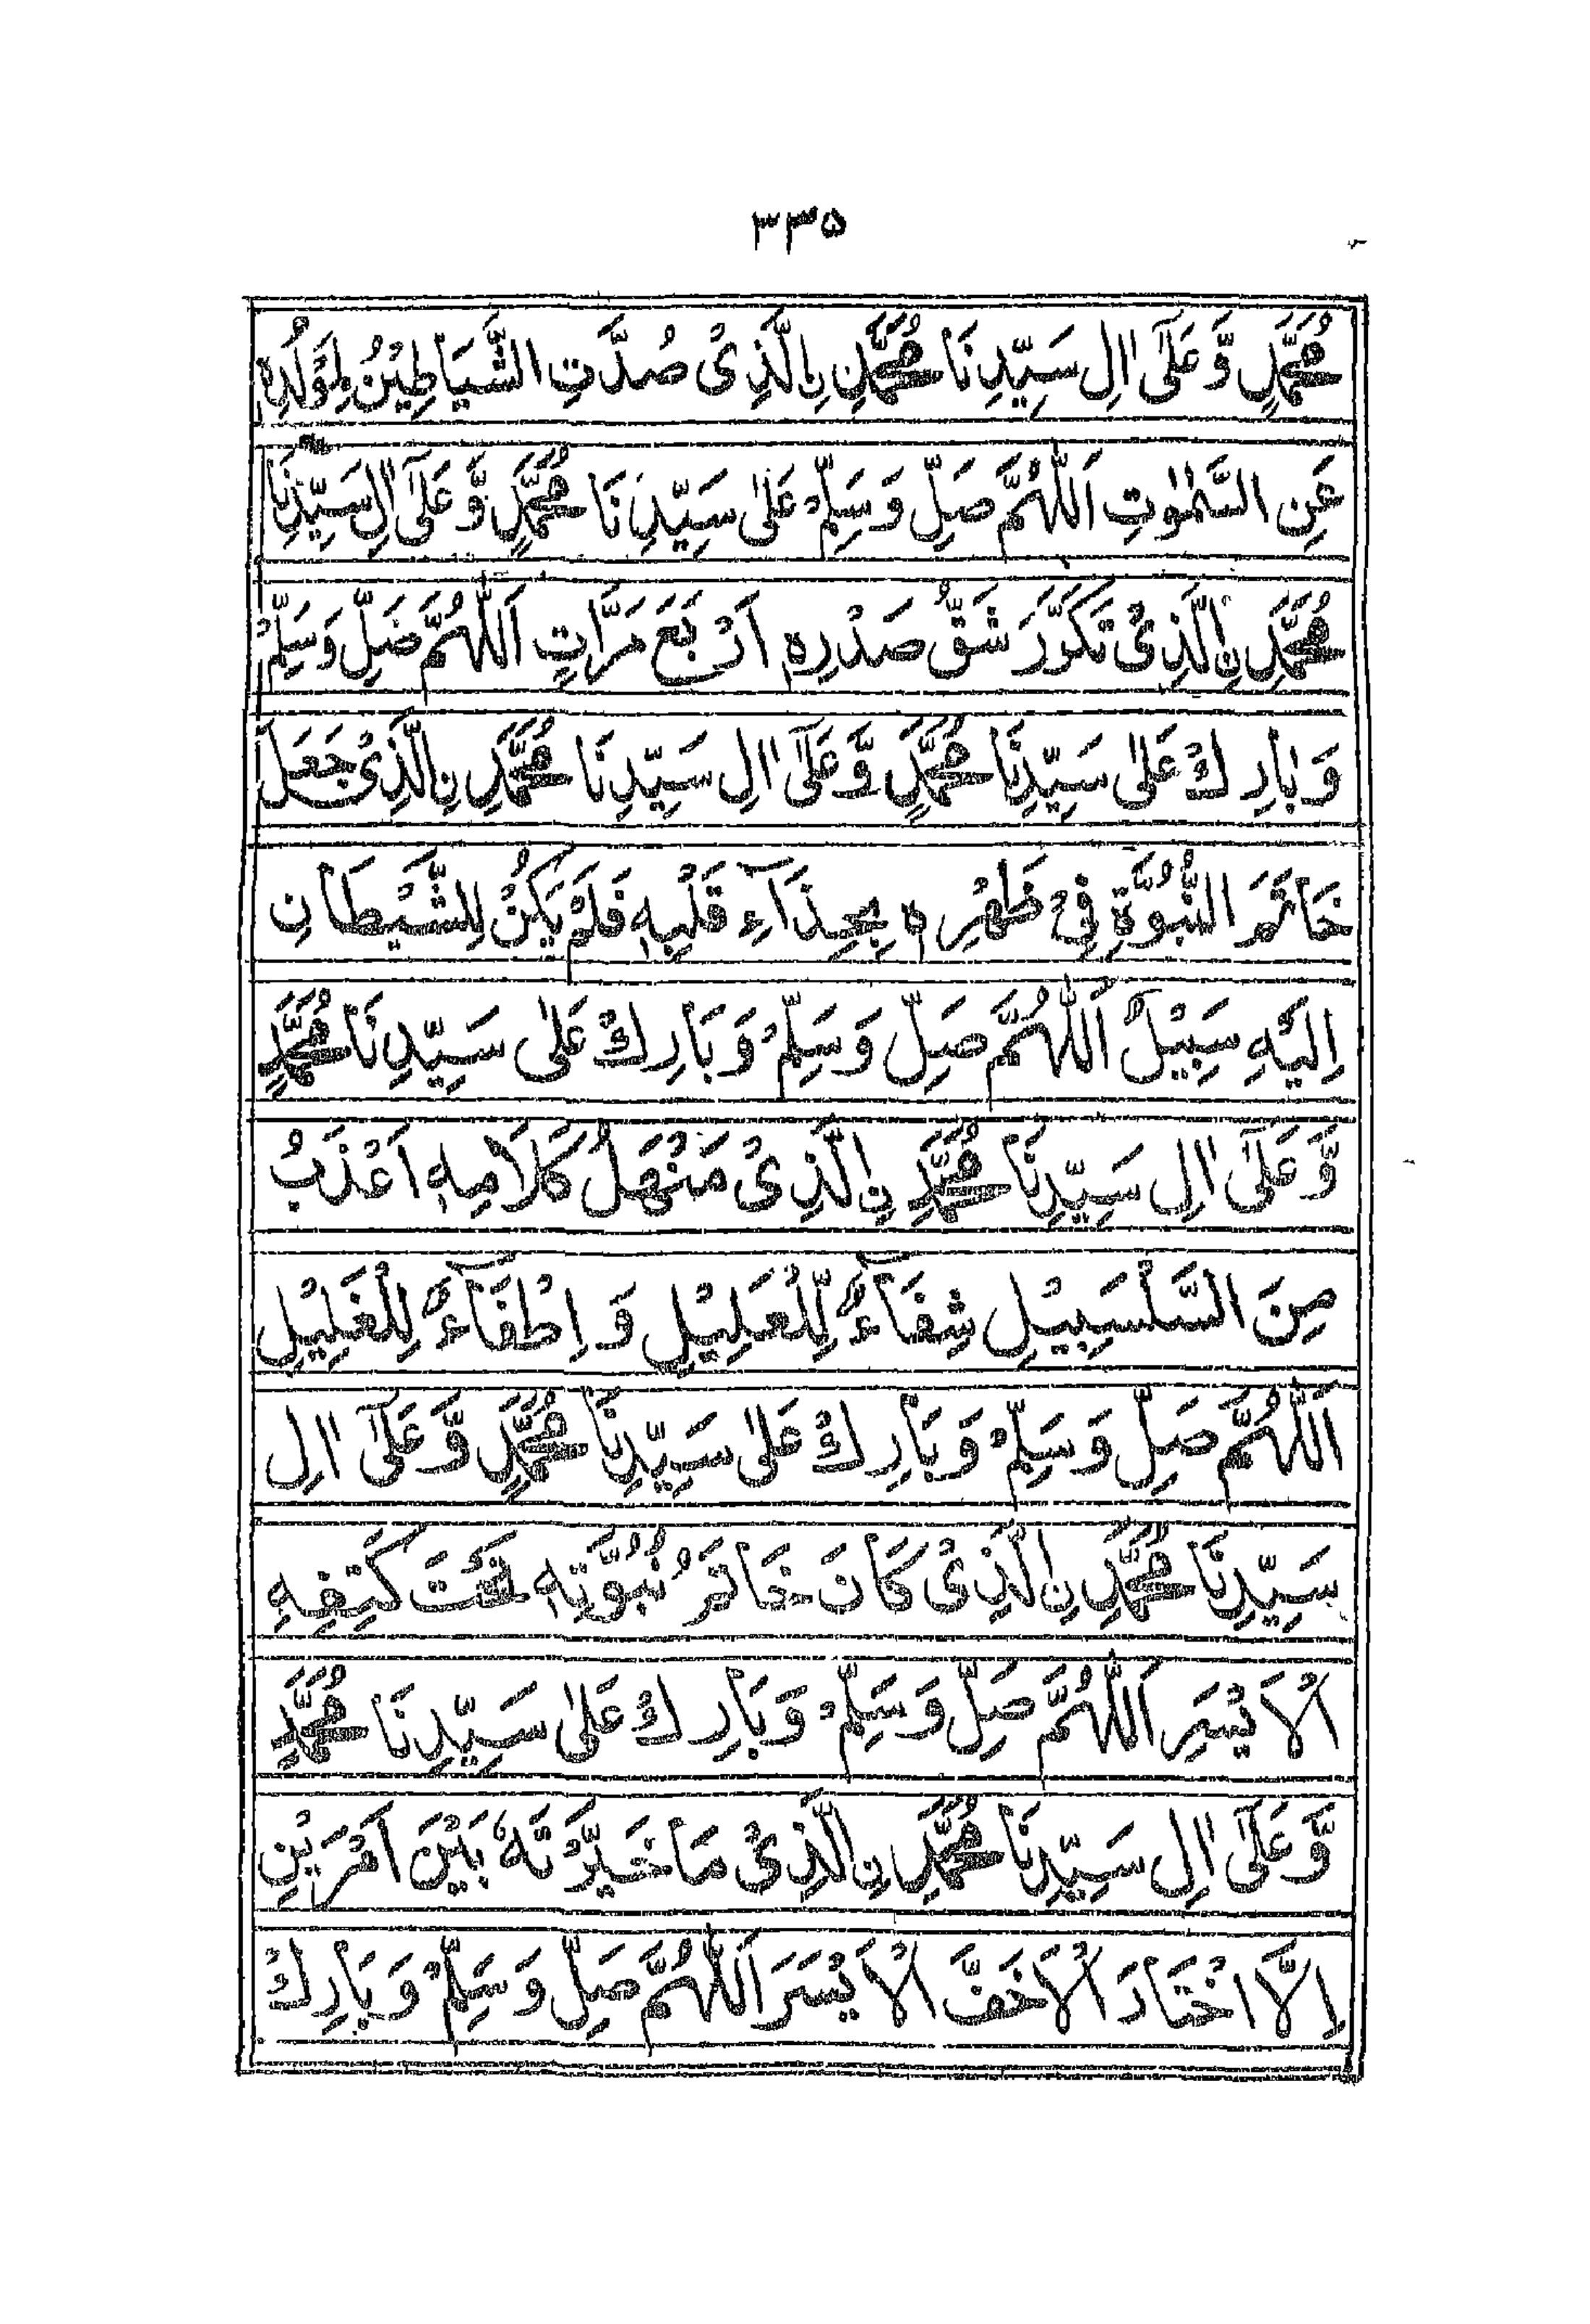 ۳۳۵
مُحَمَّدٍ وَّعَلٰٓى اٰلِ سَيِّدِنَا مُحَمَّدِنِ الَّذِىْ صُدَّتِ الشَّيَاطِيْنُ لِمَوْلِدِهٖ
عَنِ السَّمٰوٰتِ اَللّٰهُمَّ صَلِّ وَسَلِّمْ عَلٰى سَيِّدِنَا مُحَمَّدٍ وَّعَلٰٓى اٰلِ سَيِّدِنَا
مُحَمَّدِنِ الَّذِىْ تَكَرَّرَ شَقُّ صَدْرِهٖ اَرْبَعَ مَرَّاتٍ اَللّٰهُمَّ صَلِّ وَسَلِّمْ
وَبَارِكْ عَلٰى سَيِّدِنَا مُحَمَّدٍ وَّعَلٰٓى اٰلِ سَيِّدِنَا مُحَمَّدِنِ الَّذِىْ جَعَلَ
خَاتَمَ النُّبُوَّةِ فِىْ ظَهْرِهٖ بِحِذَآءِ قَلْبِهٖ فَلَمْ يَكُنْ لِلشَّيْطَانِ
اِلَيْهِ سَبِيْلٌ اَللّٰهُمَّ صَلِّ وَسَلِّمْ وَبَارِكْ عَلٰى سَيِّدِنَا مُحَمَّدٍ
وَّعَلٰٓى اٰلِ سَيِّدِنَا مُحَمَّدِنِ الَّذِىْ مَنْهَلُ كَلَامِهٖ اَعْذَبُ
مِنَ السَّلْسَبِيْلِ شِفَآءٌ لِّلْعَلِيْلِ وَاِطْفَآءٌ لِلْغَلِيْلِ
اَللّٰهُمَّ صَلِّ وَسَلِّمْ وَبَارِكْ عَلٰى سَيِّدِنَا مُحَمَّدٍ وَّعَلٰٓى اٰلِ
سَيِّدِنَا مُحَمَّدِنِ الَّذِىْ كَانَ خَاتَمُ نُبُوَّتِهٖ تَحْتَ كَتِفِهِ
الْاَيْسَرِ اَللّٰهُمَّ صَلِّ وَسَلِّمْ وَبَارِكْ عَلٰى سَيِّدِنَا مُحَمَّدٍ
وَّعَلٰٓى اٰلِ سَيِّدِنَا مُحَمَّدِنِ الَّذِىْ مَا خَيَّرْتَهٗ بَيْنَ اَمْرَيْنِ
اِلَّا اخْتَارَ الْاَخَفَّ الْاَيْسَرَ اَللّٰهُمَّ صَلِّ وَسَلِّمْ وَبَارِكْ